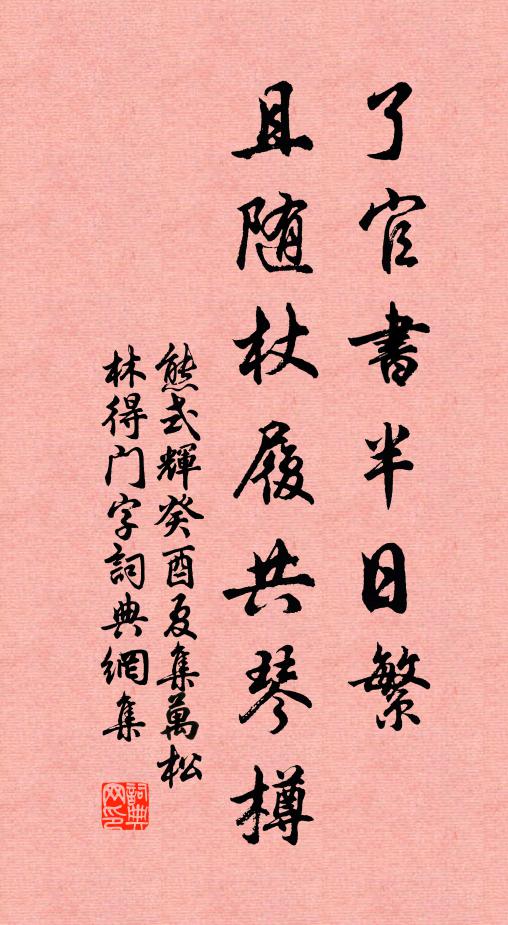 了官書半日繁
且随杖履共琴樽
熊式輝癸酉夏集萬松
林得门字詞典網集
詞典
网印